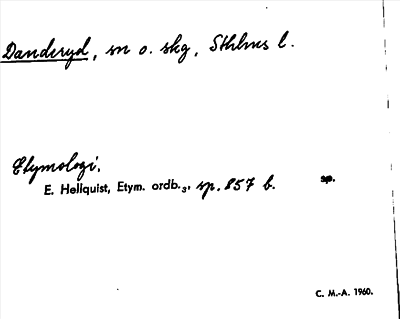 Danderyd, sn o. skg, Sthlms l.
Etymologi.
E. Hellquist, Etym. ordb.₃, sp. 857 b.
C. M.-A. 1960.